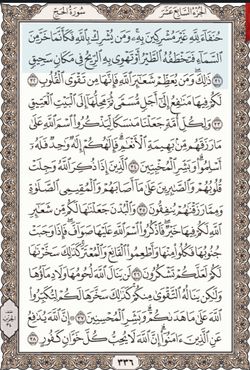 الجزء السابع عشر سورة الحج
حنفاء لله غير مشركين به ومن يشرك بالله فكأنما خر من
السماء فتخطفه الطير أو تهوي به الريح في مكان سحيق
٣١ ذلك ومن يعظم شعائر الله فإنها من تقوى القلوب ٣٢
لكم فيها منافع إلى أجل مسمى ثم محلها إلى البيت العتيق
٣٣ ولكل أمة جعلنا منسكا ليذكروا اسم الله على
ما رزقهم من بهيمة الأنعام فإلهكم إله واحد فله
أسلموا وبشر المخبتين ٣٤ الذين إذا ذكر الله وجلت
قلوبهم والصابرين على ما أصابهم والمقيمي الصلوة
ومما رزقناهم ينفقون ٣٥ والبدن جعلناها لكم من شعائر
الله لكم فيها خير فاذكروا اسم الله عليها صواف فإذا وجبت
جنوبها فكلوا منها وأطعموا القانع والمعتر كذلك سخرناها
لكم لعلكم تشكرون ٣٦ لن ينال الله لحومها ولا دماؤها
ولكن يناله التقوى منكم كذلك سخرها لكم لتكبروا
الله على ما هداكم وبشر المحسنين ٣٧ إن الله يدافع
عن الذين ءامنوا إن الله لا يحب كل خوان كفور ٣٨
٣٣٦